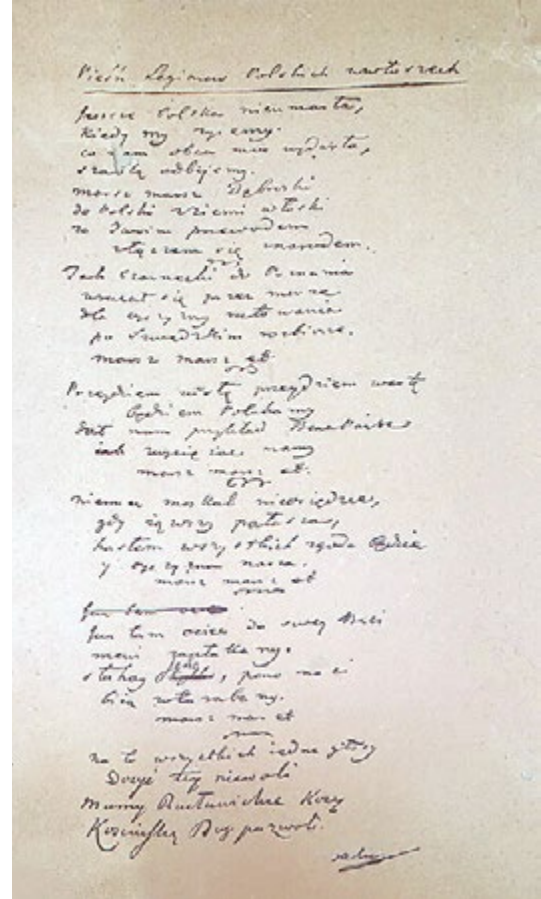 Pieśń Legionów Polskich we włoszech
Jeszcze Polska nieumarła,
kiedy my żyiemy.
co nam obca moc wydarła,
szablą odbijemy.
marsz marsz Dąbroski
do Polski z ziemi włoski
za Twoim przewodem
złączem się znarodem.
Jak Czarnecki do Poznania
wracał się przez morze
dla oyczyzny ratowania
po Szwedzkim rozbiorze.
marsz marsz et
Przeydziem wisłę przeydziem wartę
będziem Polakamy
dał nam przykład Bonaparte
iak zwyciężać mamy
marsz marsz et.
niemiec moskal nieosiędzie,
gdy iąwszy pałasza,
hasłem wszystkich zgoda będzie
y oyczyzna nasza.
marsz marsz et
Już tam ociec do swey Basi
mówi zapłakany.
słuchay, pono nasi
biią w tarabany.
marsz mar et
na to wszystkich iedne głosy
Dosyć tey niewoli
mamy Racławickie Kosy
Kosciuszkę Bóg pozwoli.